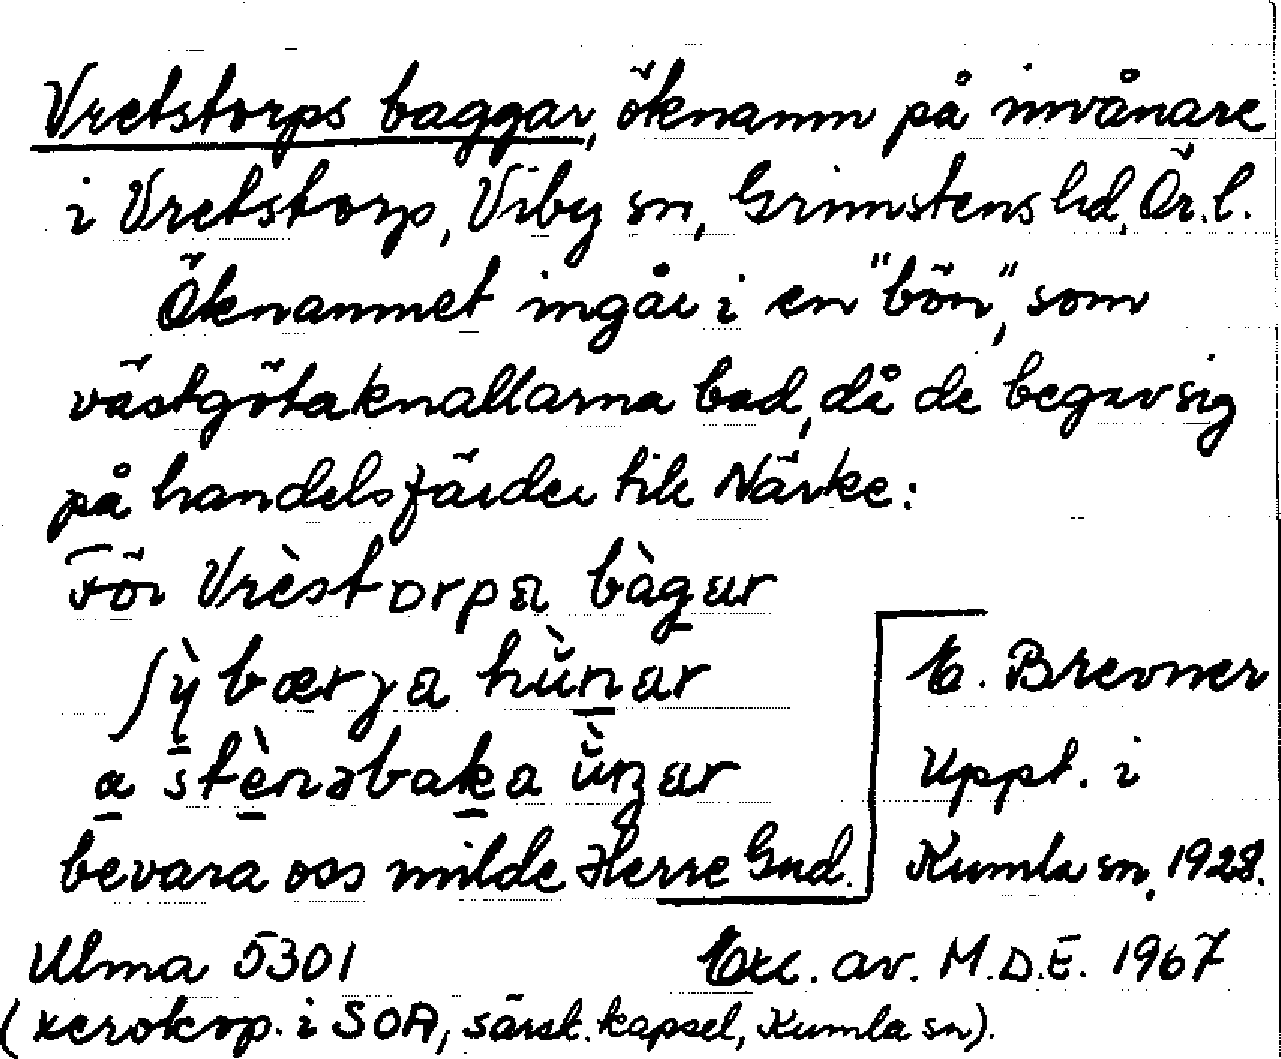 Vretstorps baggar, öknamn på invånare
i Vretstorp, Viby sn, Grimstens hd, Ör.l.
Öknamnet ingår i en "bön", som
västgötaknallarna bad, då de begav sig
på handelsfärder till Närke:
För Vrèstorpa bàgar
ʃỳbærja hùnar
a stènəbaka ùŋar
bevara oss milde Herre Gud.
E. Brevner
Uppt. i
Kumla sn, 1928.
Ulma 5301
Exc. av. M.D.E. 1967
(xerokop. i SOA, särsk. kapsel, Kumla sn).